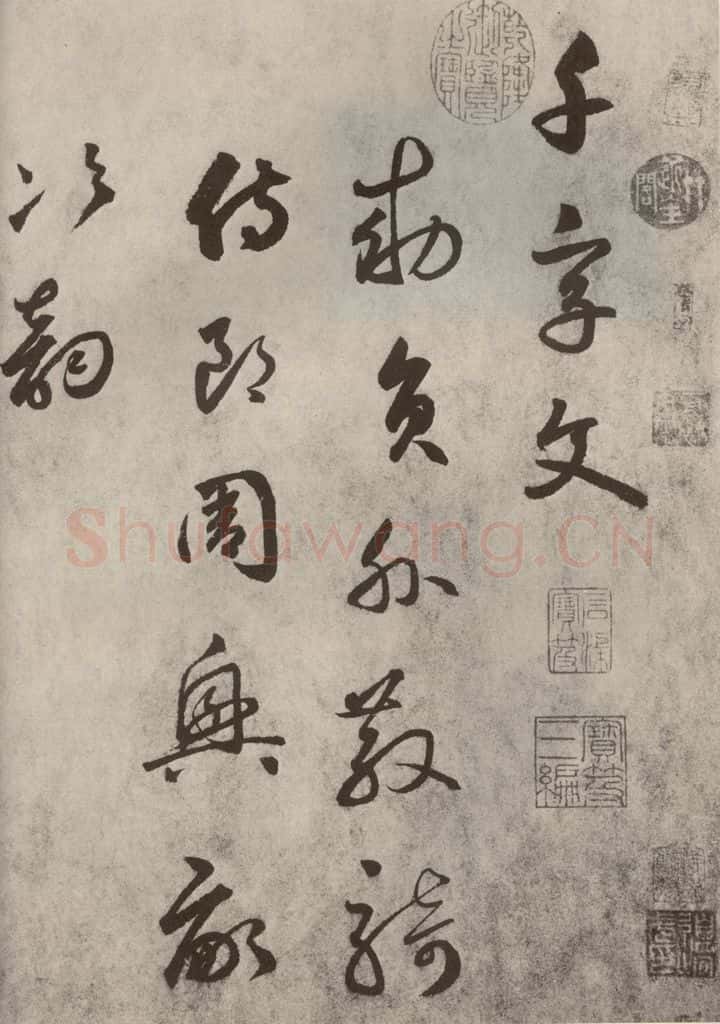 千字文
勅員外散騎
侍郎周興嗣
次韻
乾隆御覽之寶
石渠寶笈
寶笈三編
Shufawang.CN